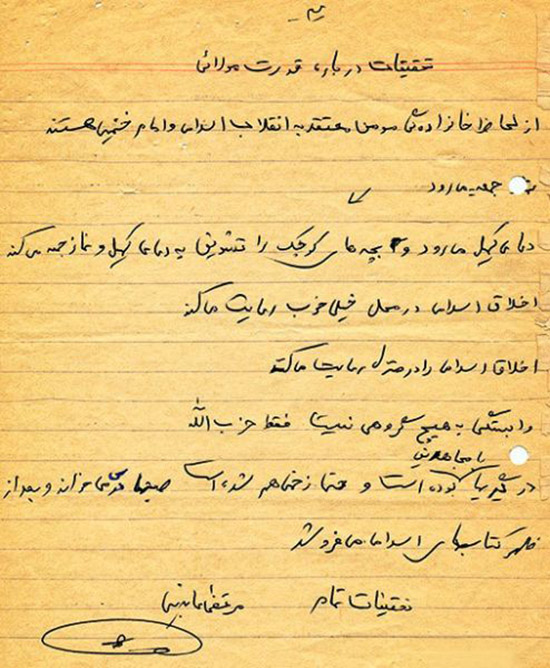 تحقیقات درباره قدرت مولائی
از لحاظ خانوادگی مومن معتقد به انقلاب اسلامی و امام خمینی هستند
نماز جمعه میرود
دعای کمیل میرود و بچه های کوچک را تشویق به دعای کمیل و نماز جمعه می کند
اخلاق اسلامی در محل خیلی خوب رعایت میکند
اخلاق اسلامی را در منزل رعایت میکند
وابستگی به هیچ گروهی نیست فقط حزب الله
با مجاهدین
درگیر بوده است و حتما زخمی هم شده است صبحها می خواند و بعد از
ظهر کتابهای اسلامی می فروشد
تحقیقات تمام